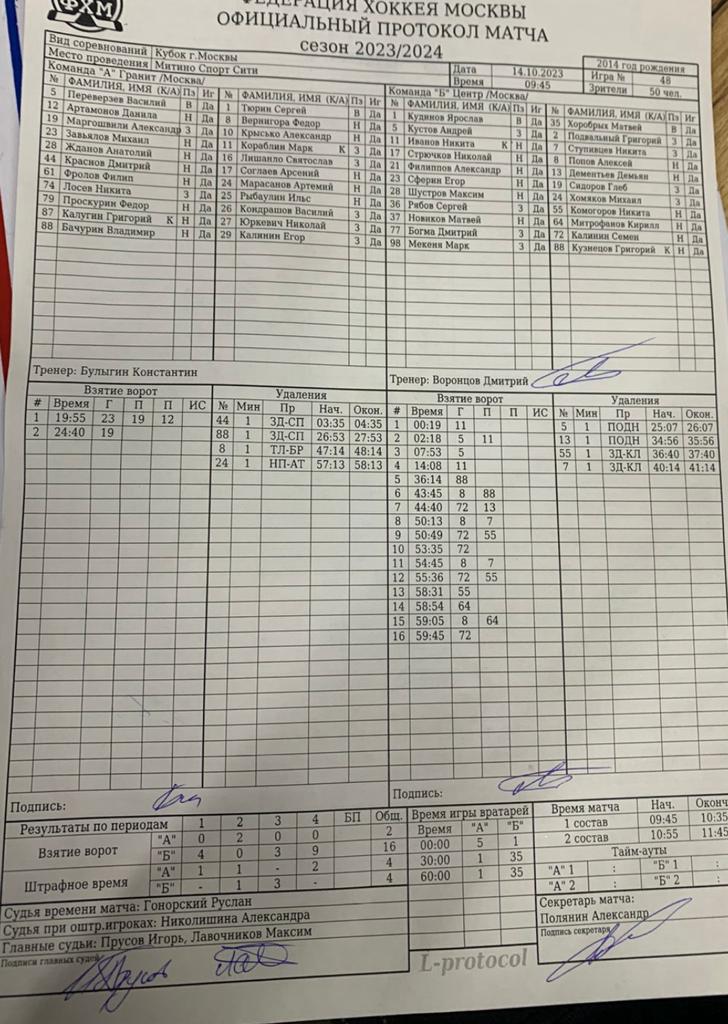 ФХМ
ФЕДЕРАЦИЯ ХОККЕЯ МОСКВЫ
ОФИЦИАЛЬНЫЙ ПРОТОКОЛ МАТЧА
сезон 2023/2024
Вид соревнований Кубок г.Москвы Дата 14.10.2023 2014 год рождения
Место проведения Митино Спорт Сити Время 09:45 Игра № 48
Зрители 50 чел.
Команда "А" Гранит /Москва/
№ ФАМИЛИЯ, ИМЯ (К/А) Пз Иг № ФАМИЛИЯ, ИМЯ (К/А) Пз Иг
5 Переверзев Василий В Да 1 Тюрин Сергей В Да
12 Артамонов Данила Н Да 8 Вернигора Федор Н Да
19 Маргошвили Александр З Да 10 Крмсько Александр Н Да
23 Завьялов Михаил Н Да 11 Кораблин Марк К З Да
28 Жданов Анатолий Н Да 16 Лишанло Святослав З Да
44 Краснов Дмитрий Н Да 17 Соглаев Арсений Н Да
61 Фролов Филип Н Да 24 Марасанов Артемий Н Да
74 Лосев Никита З Да 25 Рыбаулин Ильс Н Да
79 Проскурин Федор Н Да 26 Кондрашов Василий З Да
87 Калугин Григорий К Н Да 27 Юркевич Николай З Да
88 Бачурин Владимир Н Да 29 Калинин Егор З Да
Команда "Б" Центр /Москва/
№ ФАМИЛИЯ, ИМЯ (К/А) Пз Иг № ФАМИЛИЯ, ИМЯ (К/А) Пз Иг
1 Кудинов Ярослав В Да 35 Хоробрых Матвей В Да
5 Кустов Андрей З Да 2 Подвальный Григорий З Да
11 Иванов Никита К Н Да 7 Ступивцев Никита З Да
17 Стрючков Николай Н Да 8 Попов Алексей Н Да
21 Филиппов Александр Н Да 13 Дементьев Демьян Н Да
23 Сферин Егор Н Да 19 Сидоров Глеб З Да
28 Шустров Максим Н Да 24 Хомяков Михаил З Да
36 Рябов Сергей З Да 55 Комогоров Никита Н Да
37 Новиков Матвей Н Да 64 Митрофанов Кирилл Н Да
77 Богма Дмитрий З Да 72 Калинин Семен Н Да
98 Мекеня Марк З Да 88 Кузнецов Григорий К Н Да
Тренер: Булыгин Константин
Тренер: Воронцов Дмитрий
Взятие ворот Удаления
# Время Г П П ИС № Мин Пр Нач. Окон.
1 19:55 23 19 12 44 1 ЗД-СП 03:35 04:35
2 24:40 19 88 1 ЗД-СП 26:53 27:53
8 1 ТЛ-БР 47:14 48:14
24 1 НП-АТ 57:13 58:13
Взятие ворот Удаления
# Время Г П П ИС № Мин Пр Нач. Окон.
1 00:19 11 5 1 ПОДН 25:07 26:07
2 02:18 5 11 13 1 ПОДН 34:56 35:56
3 07:53 5 55 1 ЗД-КЛ 36:40 37:40
4 14:08 11 7 1 ЗД-КЛ 40:14 41:14
5 36:14 88
6 43:45 8 88
7 44:40 72 13
8 50:13 8 7
9 50:49 72 55
10 53:35 72
11 54:45 8 7
12 55:36 72 55
13 58:31 55
14 58:54 64
15 59:05 8 64
16 59:45 72
Подпись:
Подпись:
Результаты по периодам 1 2 3 4 БП Общ.
Взятие ворот "А" 0 2 0 0 2
"Б" 4 0 3 9 16
Штрафное время "А" 1 1 - 2 4
"Б" - 1 3 - 4
Время игры вратарей
Время "А" "Б"
00:00 5 1
30:00 1 35
60:00 1 35
Время матча Нач. Оконч
1 состав 09:45 10:35
2 состав 10:55 11:45
Тайм-ауты
"А" 1 : "Б" 1 :
"А" 2 : "Б" 2 :
Судья времени матча: Гонорский Руслан
Судья при оштр.игроках: Николишина Александра
Главные судьи: Прусов Игорь, Лавочников Максим
Подписи главных судей
Секретарь матча:
Полянин Александр
Подпись секретаря
L-protocol